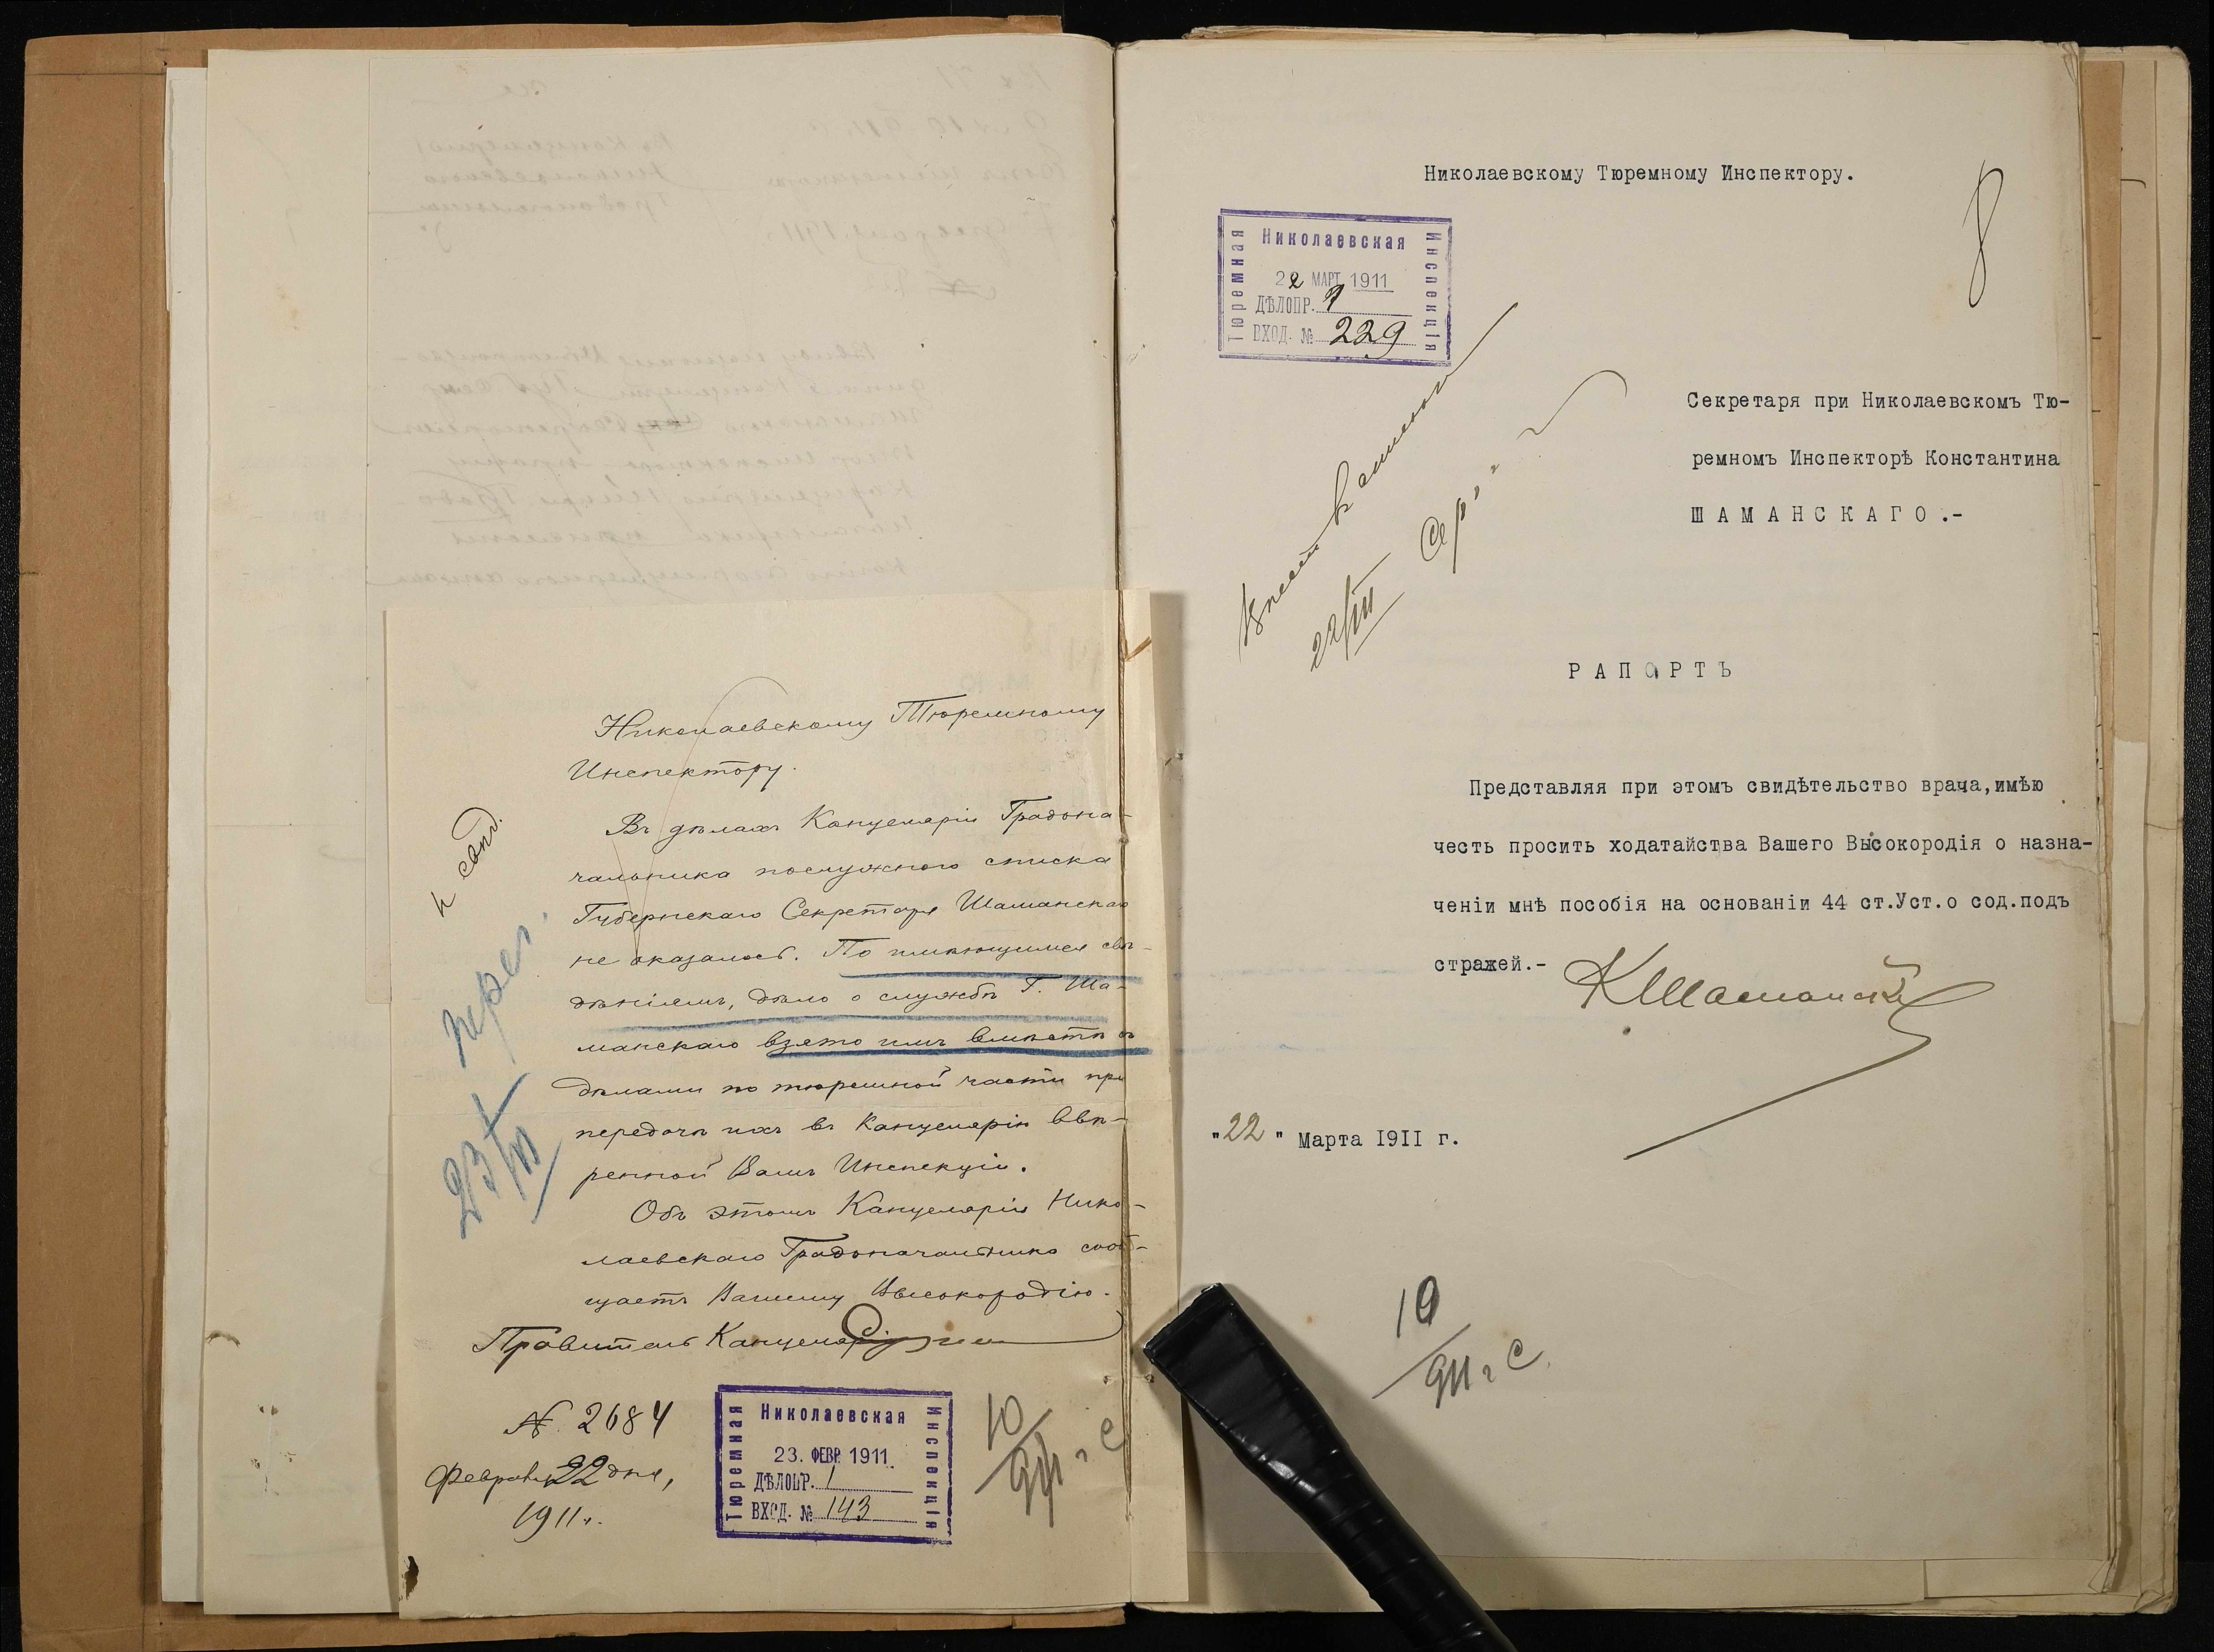 Николаевскому Тюремному
Инспектору.
Въ дѣлахъ Канцеляріи Градона-
чальника послужного списка
Губернскаго Секретаря Шаманскаго
не оказалось. По имѣющимся свѣ-
дѣніямъ, дѣло о службѣ Г. Ша-
манскаго взято имъ вмѣстѣ съ
дѣлами по тюремной части при
передачѣ ихъ въ Канцелярію ввѣ-
ренной Вамъ Инспекціи.
Объ этомъ Канцелярія Нико-
лаевскаго Градоначальника сооб-
щаетъ Вашему Высокородію.
Правитель Канцеляріи
№ 2684
Февраля 22 дня,
1911 г.
23/III
Николаевская
Тюремная
Инспекція
23. ФЕВР 1911
ДѢЛОПР. 1
ВХОД. № 143
10
911 г С
Николаевскому Тюремному Инспектору.
8
Николаевская
Тюремная
Инспекція
22 МАРТ 1911
ДѢЛОПР. 1
ВХОД. № 229
22/III
Секретаря при Николаевскомъ Тю-
ремномъ Инспекторѣ Константина
ШАМАНСКАГО.-
РАПОРТЪ
Представляя при этомъ свидѣтельство врача,имѣю
честь просить ходатайства Вашего Высокородія о назна-
ченіи мнѣ пособія на основаніи 44 ст.Уст.о сод.подъ
стражей.-
КШаманскій
"22" Марта 1911 г.
10
911 г С.